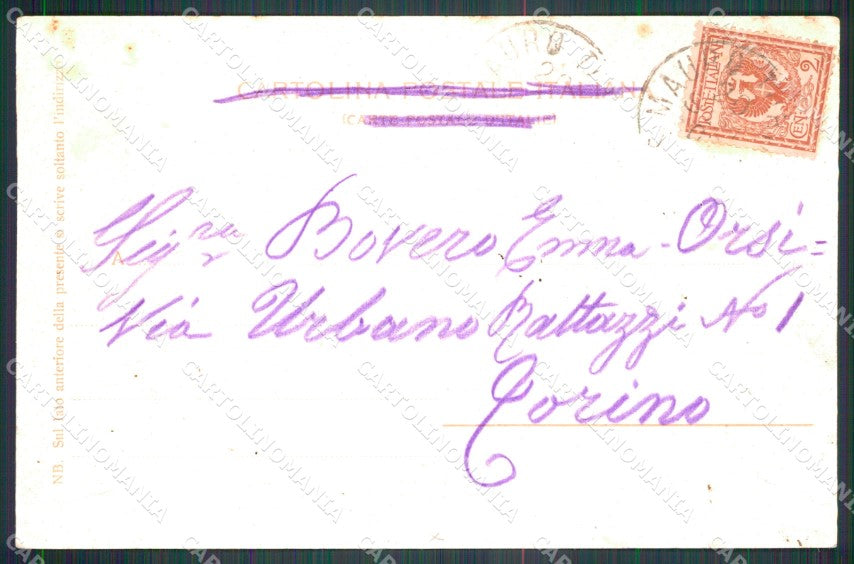 CARTOLINA POSTALE ITALIANA
(CARTE POSTALE D'ITALIE)
POSTE ITALIANE
CENT. 2
MAURO
Sig.ra Bovero Emma - Orsi=
Via Urbano Rattazzi No 1
Torino
NB. Sul lato anteriore della presente si scrive soltanto l'indirizzo
CARTOLINOMANIA